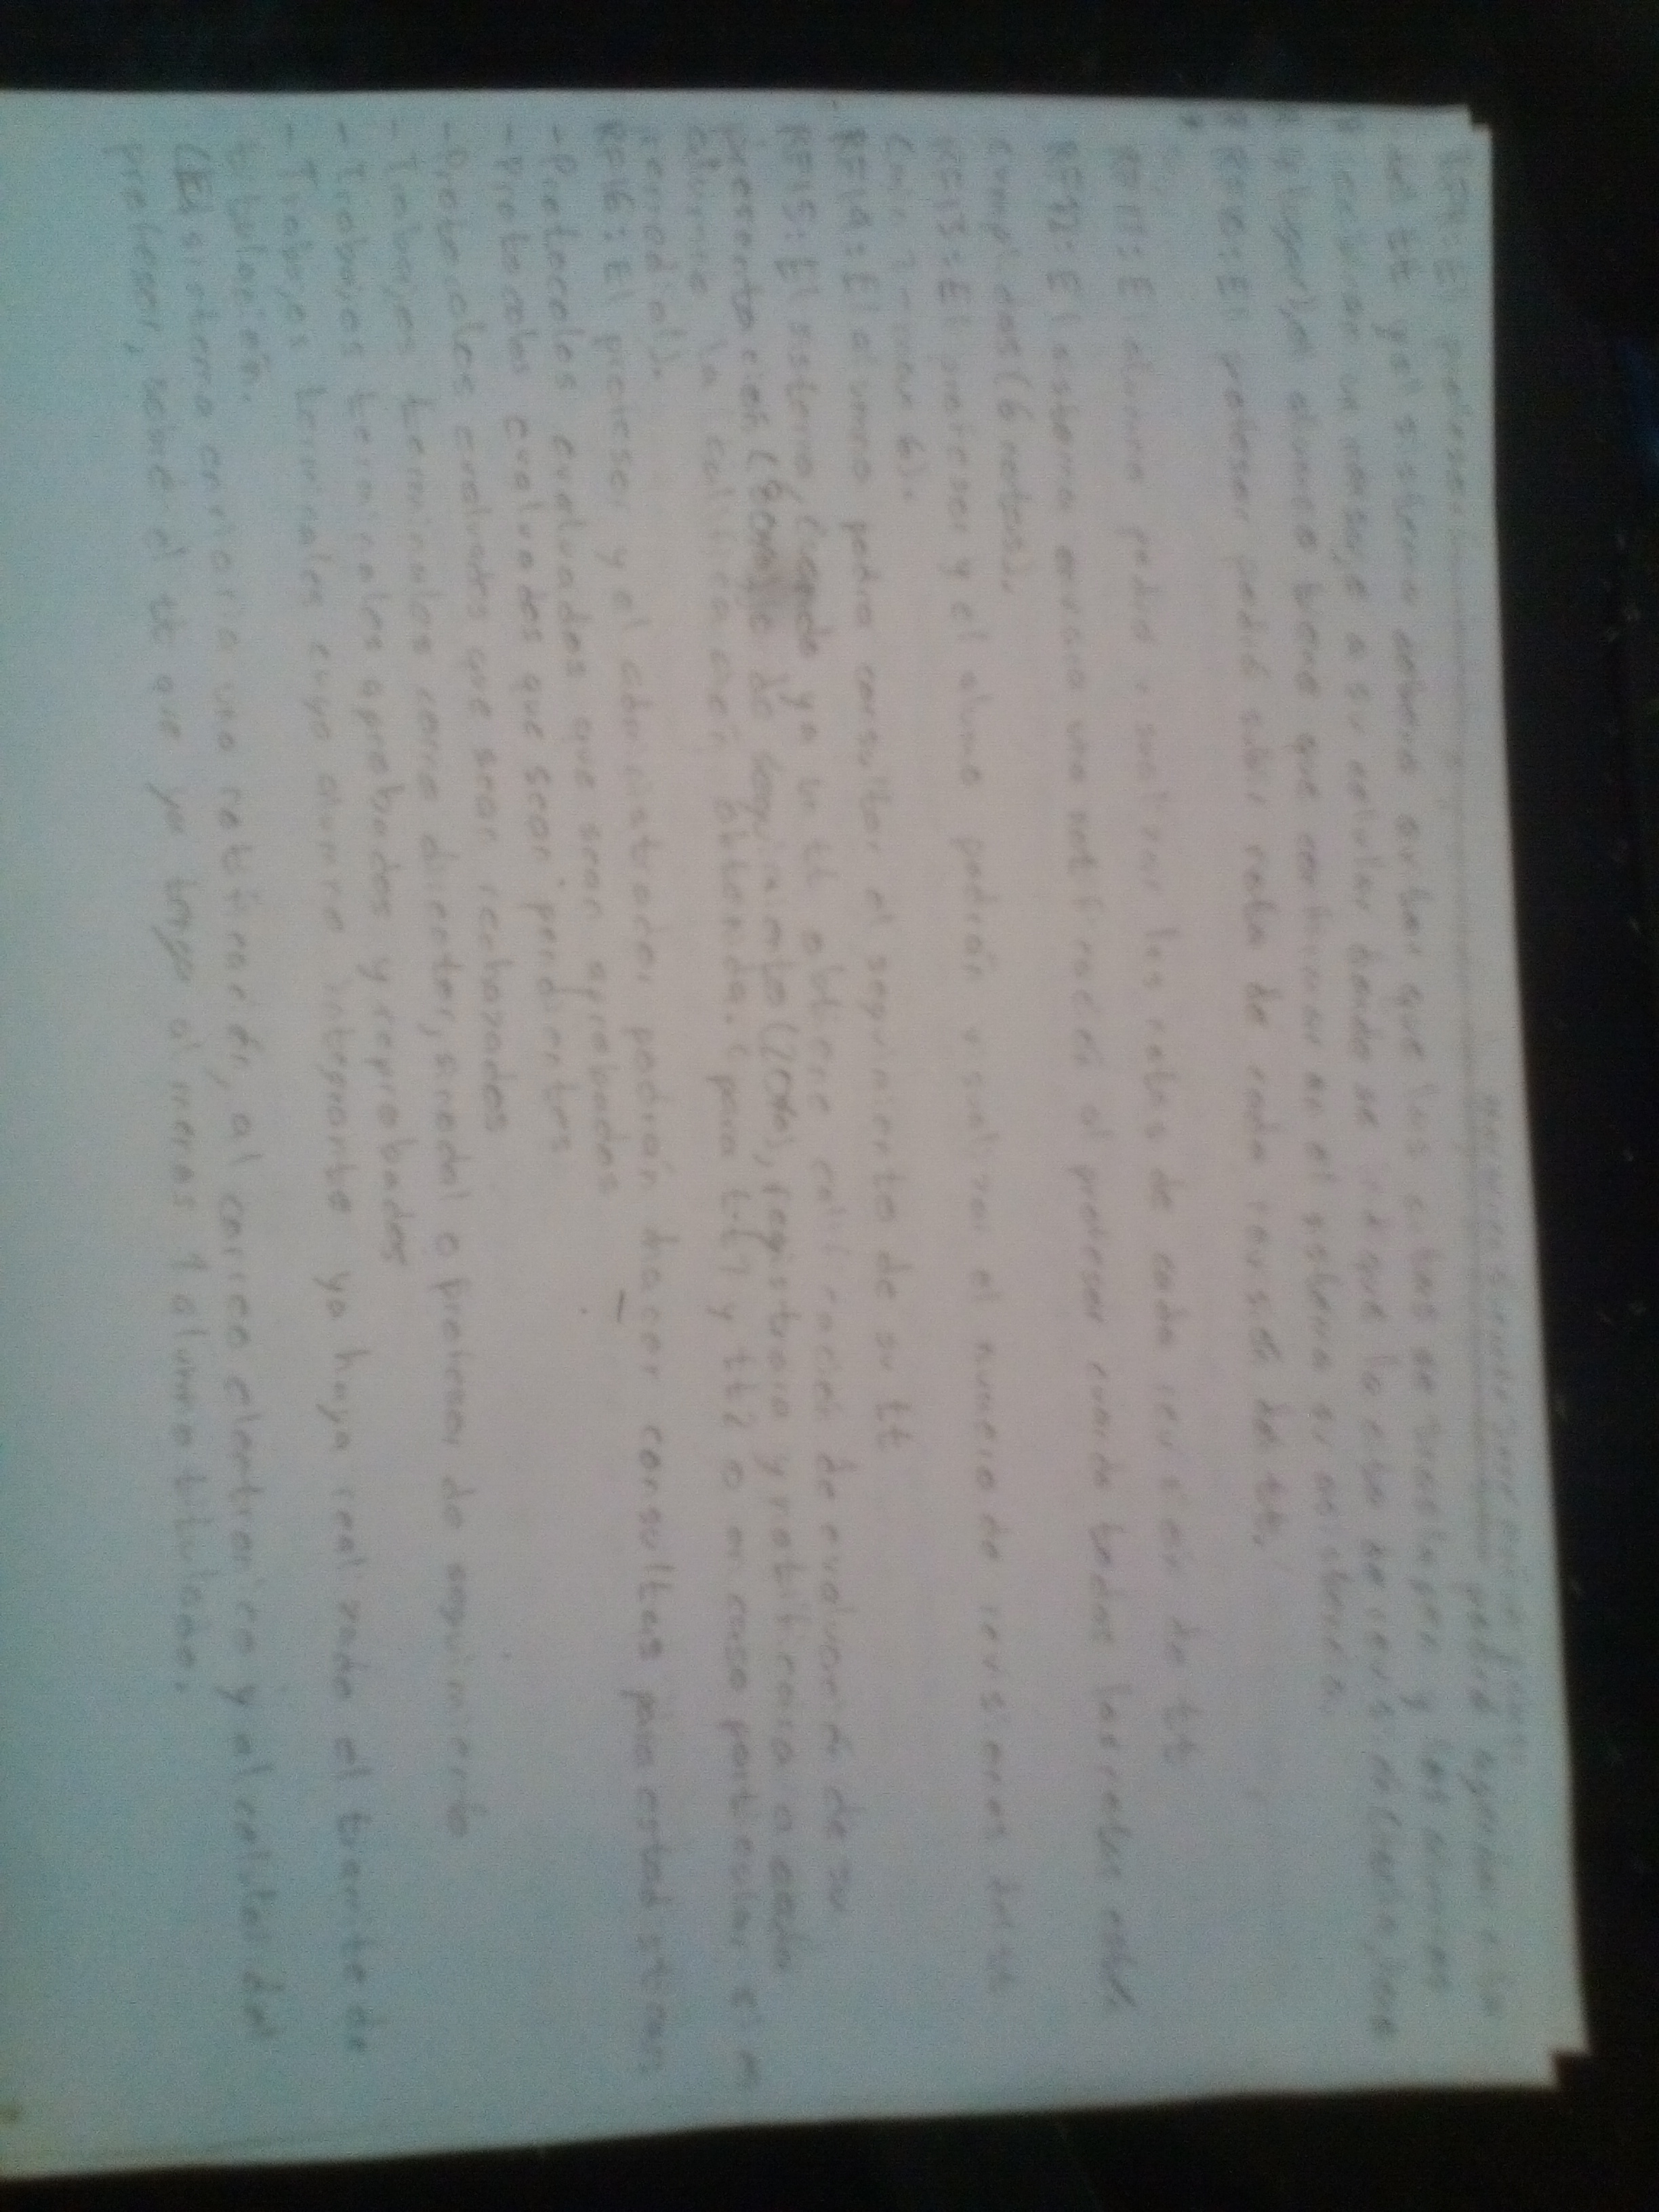 RF9: El profesor podrá agendar
del tt y el sistema deberá evitar que las citas se traslapen y los alumnos
recibirán un mensaje a su celular donde se que la cita de
y lugar), el alumno tiene que confirmar en el sistema su asistencia.
RF10: El profesor podrá subir nota de cada revisión del tt.
RF11: El alumno podrá visualizar las notas de cada revisión de tt
RF12: El sistema enviara una notificación al profesor cuando todas las notas estén
cumplidas (6 notas).
RF13: El profesor y el alumo podrán visualizar el numero de revisiones del tt
(min - max 6).
RF14: El alumno podra consultar el seguimiento de su tt
RF15: El sistema, cuando ya un tt obtiene calificación de evaluación de su
presentación (80%) o de seguimiento (20%), registrara y notificara a cada
alumno la calificación obtenida. (para tt1 y tt2 o en caso particular si es
remedial).
RF16: El profesor y el administrador podrán hacer consultas para estadisticas
- Protocolos evaluados que sean aprobados
- Protocolos evaluados que sean pendientes
- Protocolos evaluados que sean rechazados
- Trabajos terminales como director, sinodal o profesor de seguimiento
- Trabajos terminales aprobados y reprobados
- Trabajos terminales cuyo alumno integrante ya haya realizado el tramite de
titulación.
(El sistema enviaria una notificación, al correo electronico y al celular del
profesor, sobre el tt que ya tenga al menos 1 alumno titulado.